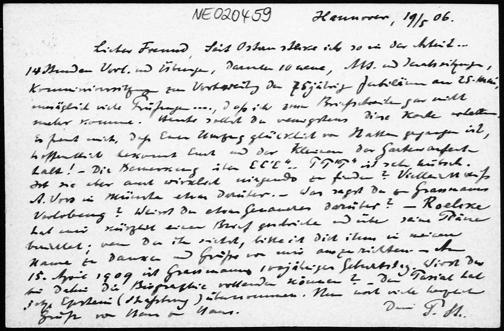 NE020459
Hannover, 19/5 06.
Lieber Freund, Seit Ostern stecke ich so in der Arbeit...
14 Stunden Vorl. und Übungen, Abt. und Senatssitzungen,
Kommissionssitzungen zur Vorbereitung des 75jährig. Jubiläums am 25. Mai,
unzählige Prüfungen ...., daß ich zum Briefschreiben gar nicht
mehr komme. Heute sollst du wenigstens diese Karte erhalten.
Es freut mich, daß Euer Umzug glücklich von Statten gegangen ist,
hoffentlich bekommt Euch und der Kleinen der Gartenaufent-
halt! – Die Bemerkung über ist sehr hübsch.
Ist sie aber auch wirklich nirgends zu finden? Vielleicht weiß
A. Voss in München etwas darüber. – Was sagst du zu Grassmanns
Verlobung? Weisst du etwas Genaueres darüber? –
hat mir kürzlich einen Brief geschickt und über seine Pläne
berichtet; wenn du ihn siehst, bitte ich dich ihm in meinem
Namen zu danken und Grüße von mir auszurichten. – Am
15. April 1909 ist Grassmanns 100jähriger Geburtstag. Wirst du
bis dahin die Biographie vollenden können? – Den
Epstein (Straßburg) übernommen. Nun noch viele herzliche
Grüße von Haus zu Haus.
Dein